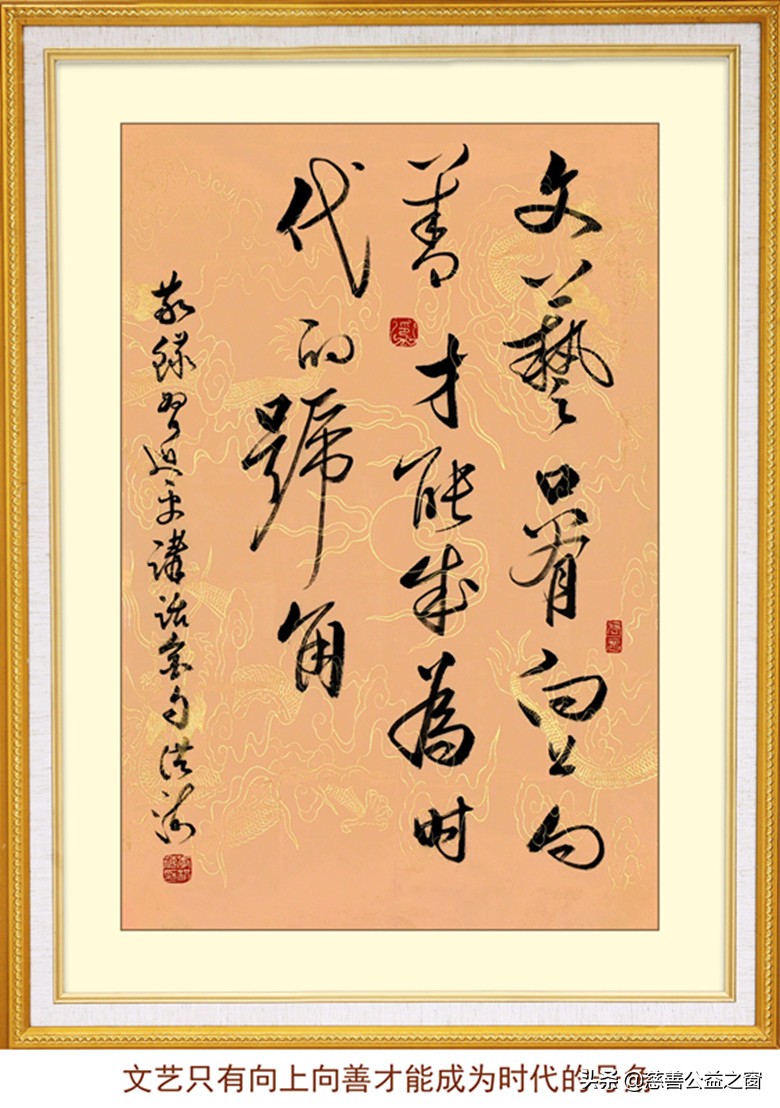 文藝只有向上向
善才能成為时
代的號角
敬録習近平講話金句洪
文艺只有向上向善才能成为时代的号角
头条 @慈善公益之窗